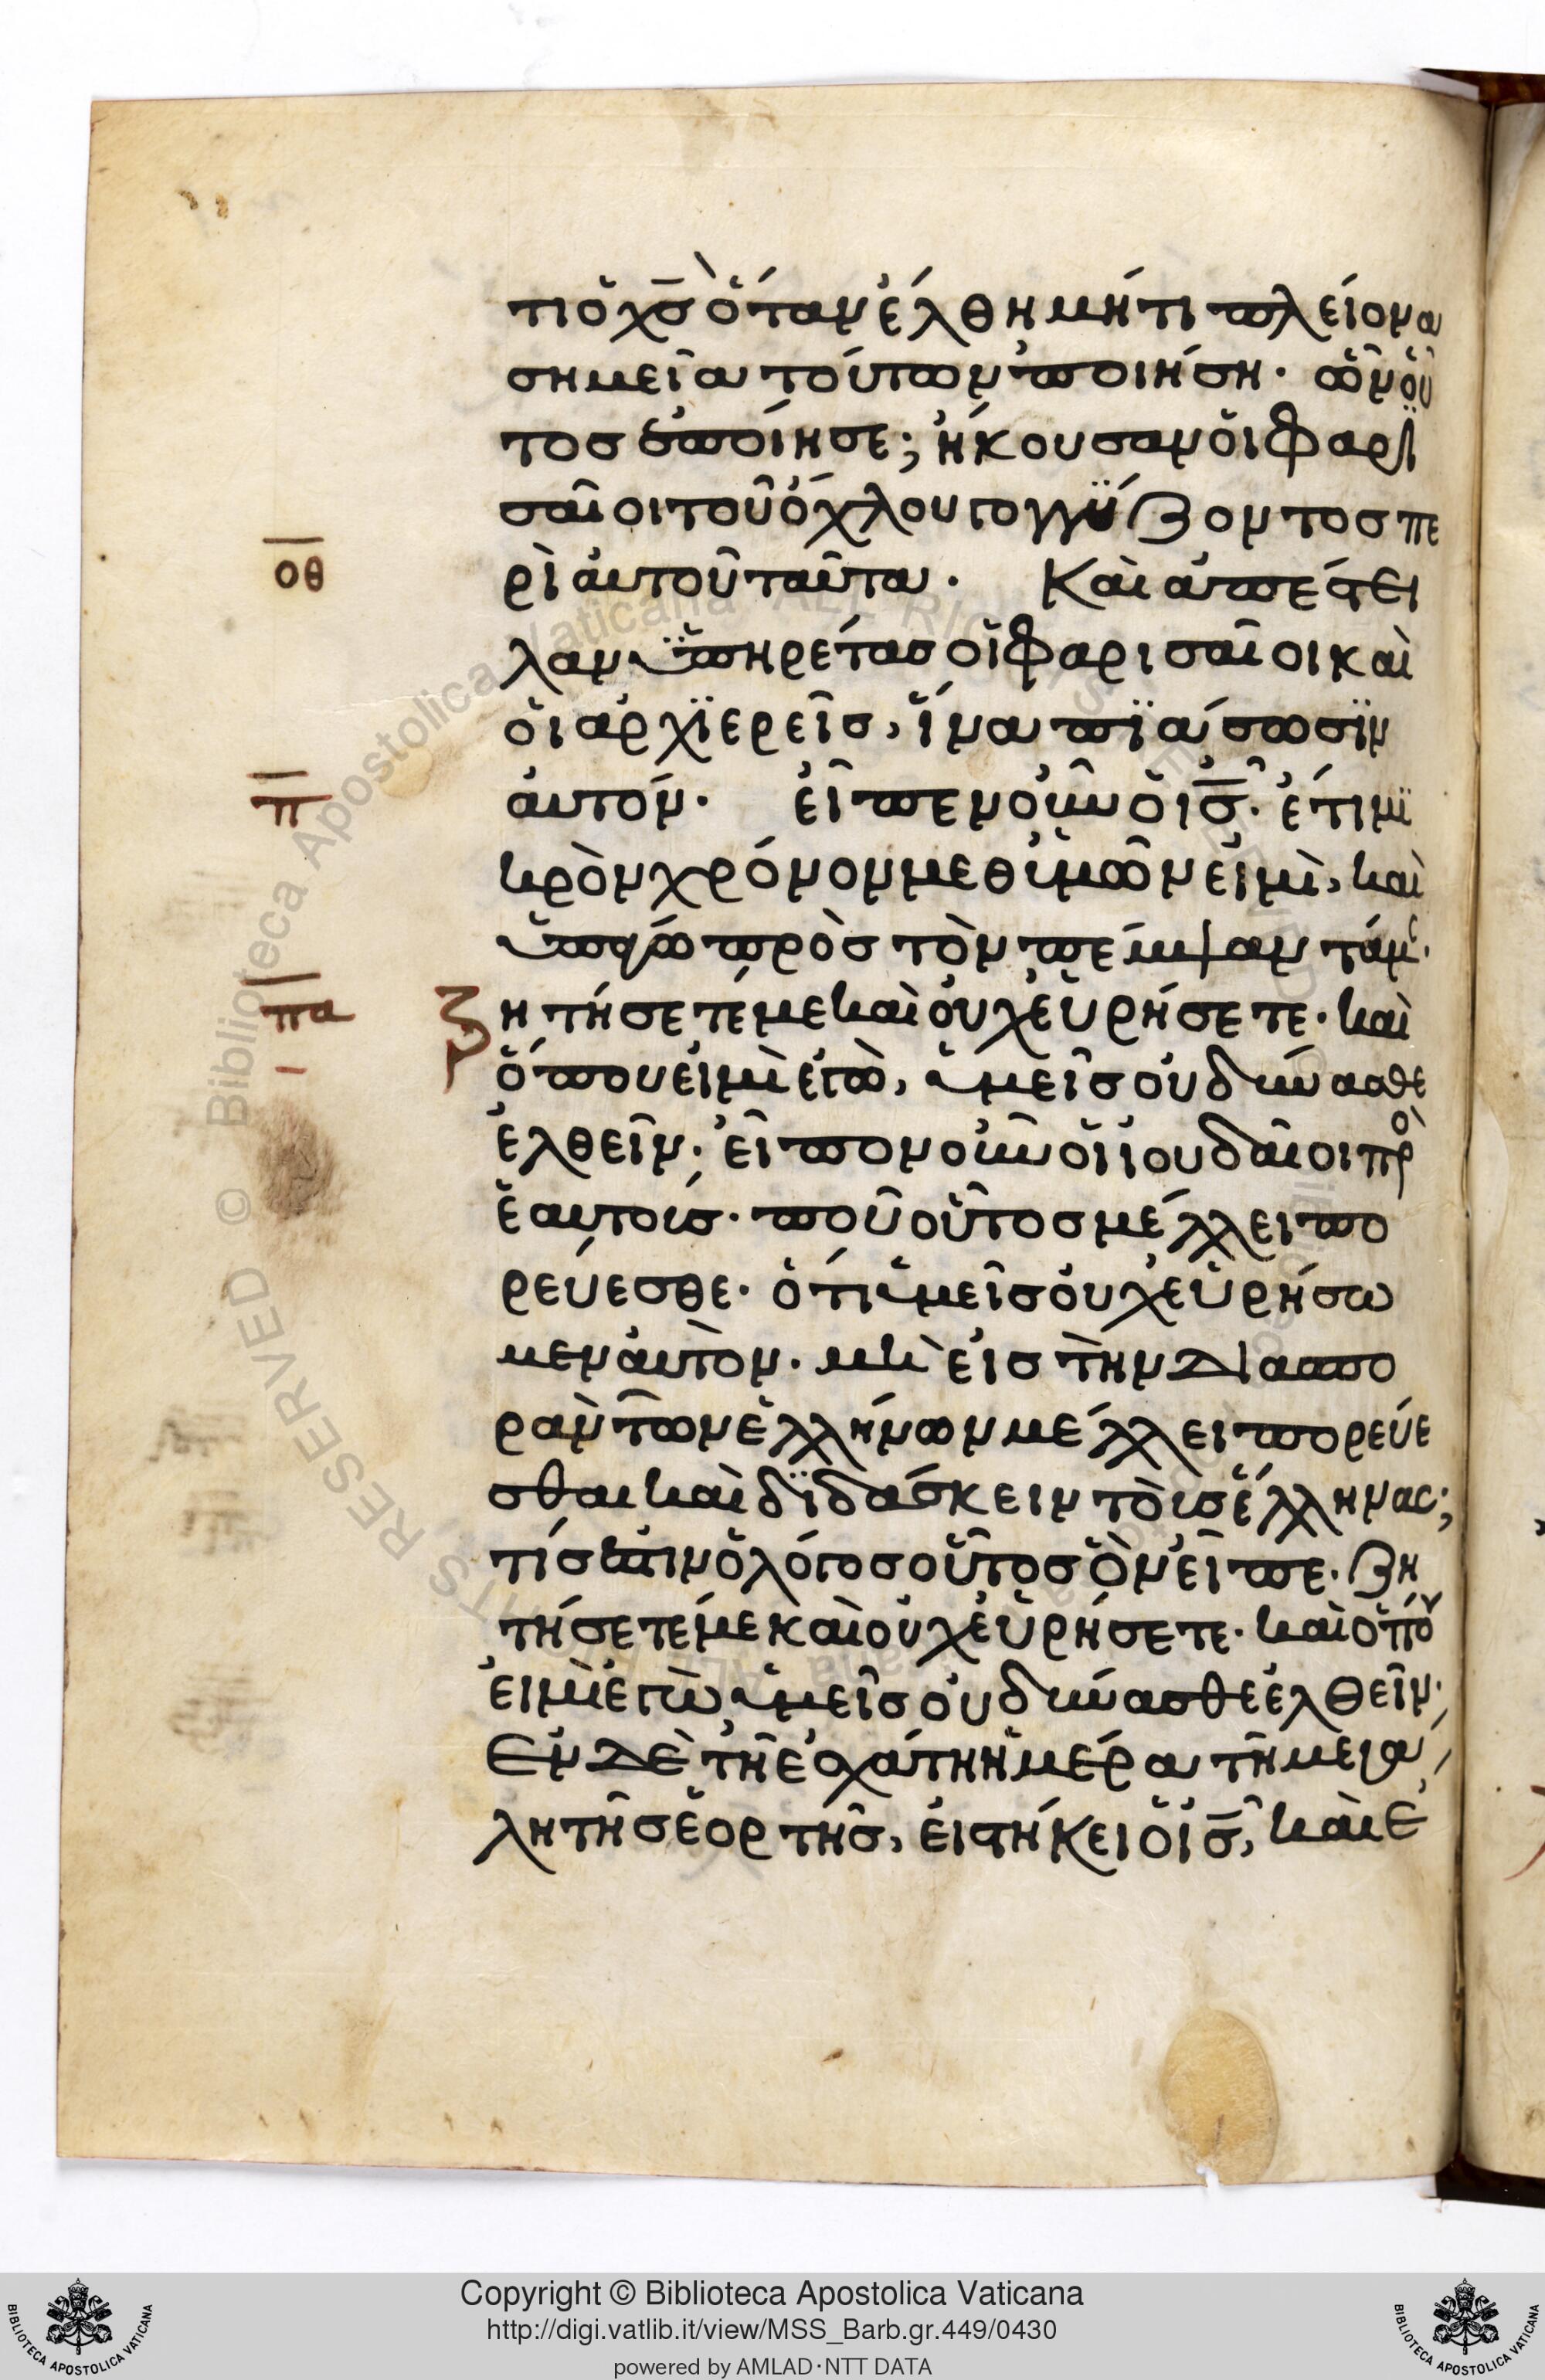 τι ὁ χ̅ς̅ ὅταν ἔλθη μήτι πλείονα
σημεῖα τούτων ποιήση· ὧν οὗ
τος ἐποίησε; ἤκουσαν ὁι φαρι
σαῖοι τοῦ ὄχλου γογγΰζοντος πε
οθ
ρὶ ἀυτοῦ ταῦτα· Καὶ ἀπέστει
λαν ὑπηρέτας οἱ φαρισαῖοι καὶ
ὁι ἀρχϊερεῖς, ἵνα πϊάσωσϊν
π
ἀυτόν· εἶπεν οὖν ὁ ι̅ς̅· ἔτι μϊ
κρὸν χρόνον μεθ ὑμῶν εἰμὶ, καὶ
ὑπάγω πρὸς τὸν πέμψαντά μ(ε)·
πα
ζητήσετέ με καὶ ὀυχ ἑυρήσετε· καὶ
ὅπου εἰμὶ ἐγὼ, ὑμεῖς οὐ δύνασθε
ἐλθεῖν· εἶπον οὖν ὁι ἰουδαῖοι πρὸ
ἑαυτοίς· ποῦ οὗτος μέλλει πο
ρεύεσθε· ὅτι ὑμεῖς ὀυχ ἑυρήσω
μεν ἀυτὸν· μὴ εἰς τὴν διασπο
ρὰν τῶν ἑλλήνων μέλλει πορεύε
σθαι καὶ δϊδάσκειν τὸις ἕλληνας;
τίς ἐστιν ὁ λόγος οὗτος ὃν εἶπε· ζη
τήσετέ με καὶ οὐχ ἑυρήσετε· καὶ ὅπου
εἰμὶ ἐγὼ ὑμεῖς οὐ δύνασθε ἐλθεῖν·
Ἐν δὲ τῆ ἐσχάτη ἡμέρα τῆ μεγά
λη τῆς ἑορτῆς, εἱστήκει ὁ ι̅ς̅, καὶ ἔ
© Biblioteca Apostolica Vaticana ALL RIGHTS RESERVED
Copyright © Biblioteca Apostolica Vaticana
http://digi.vatlib.it/view/MSS_Barb.gr.449/0430
powered by AMLAD·NTT DATA
BIBLIOTECA APOSTOLICA VATICANA
BIBLIOTECA APOSTOLICA VATICANA